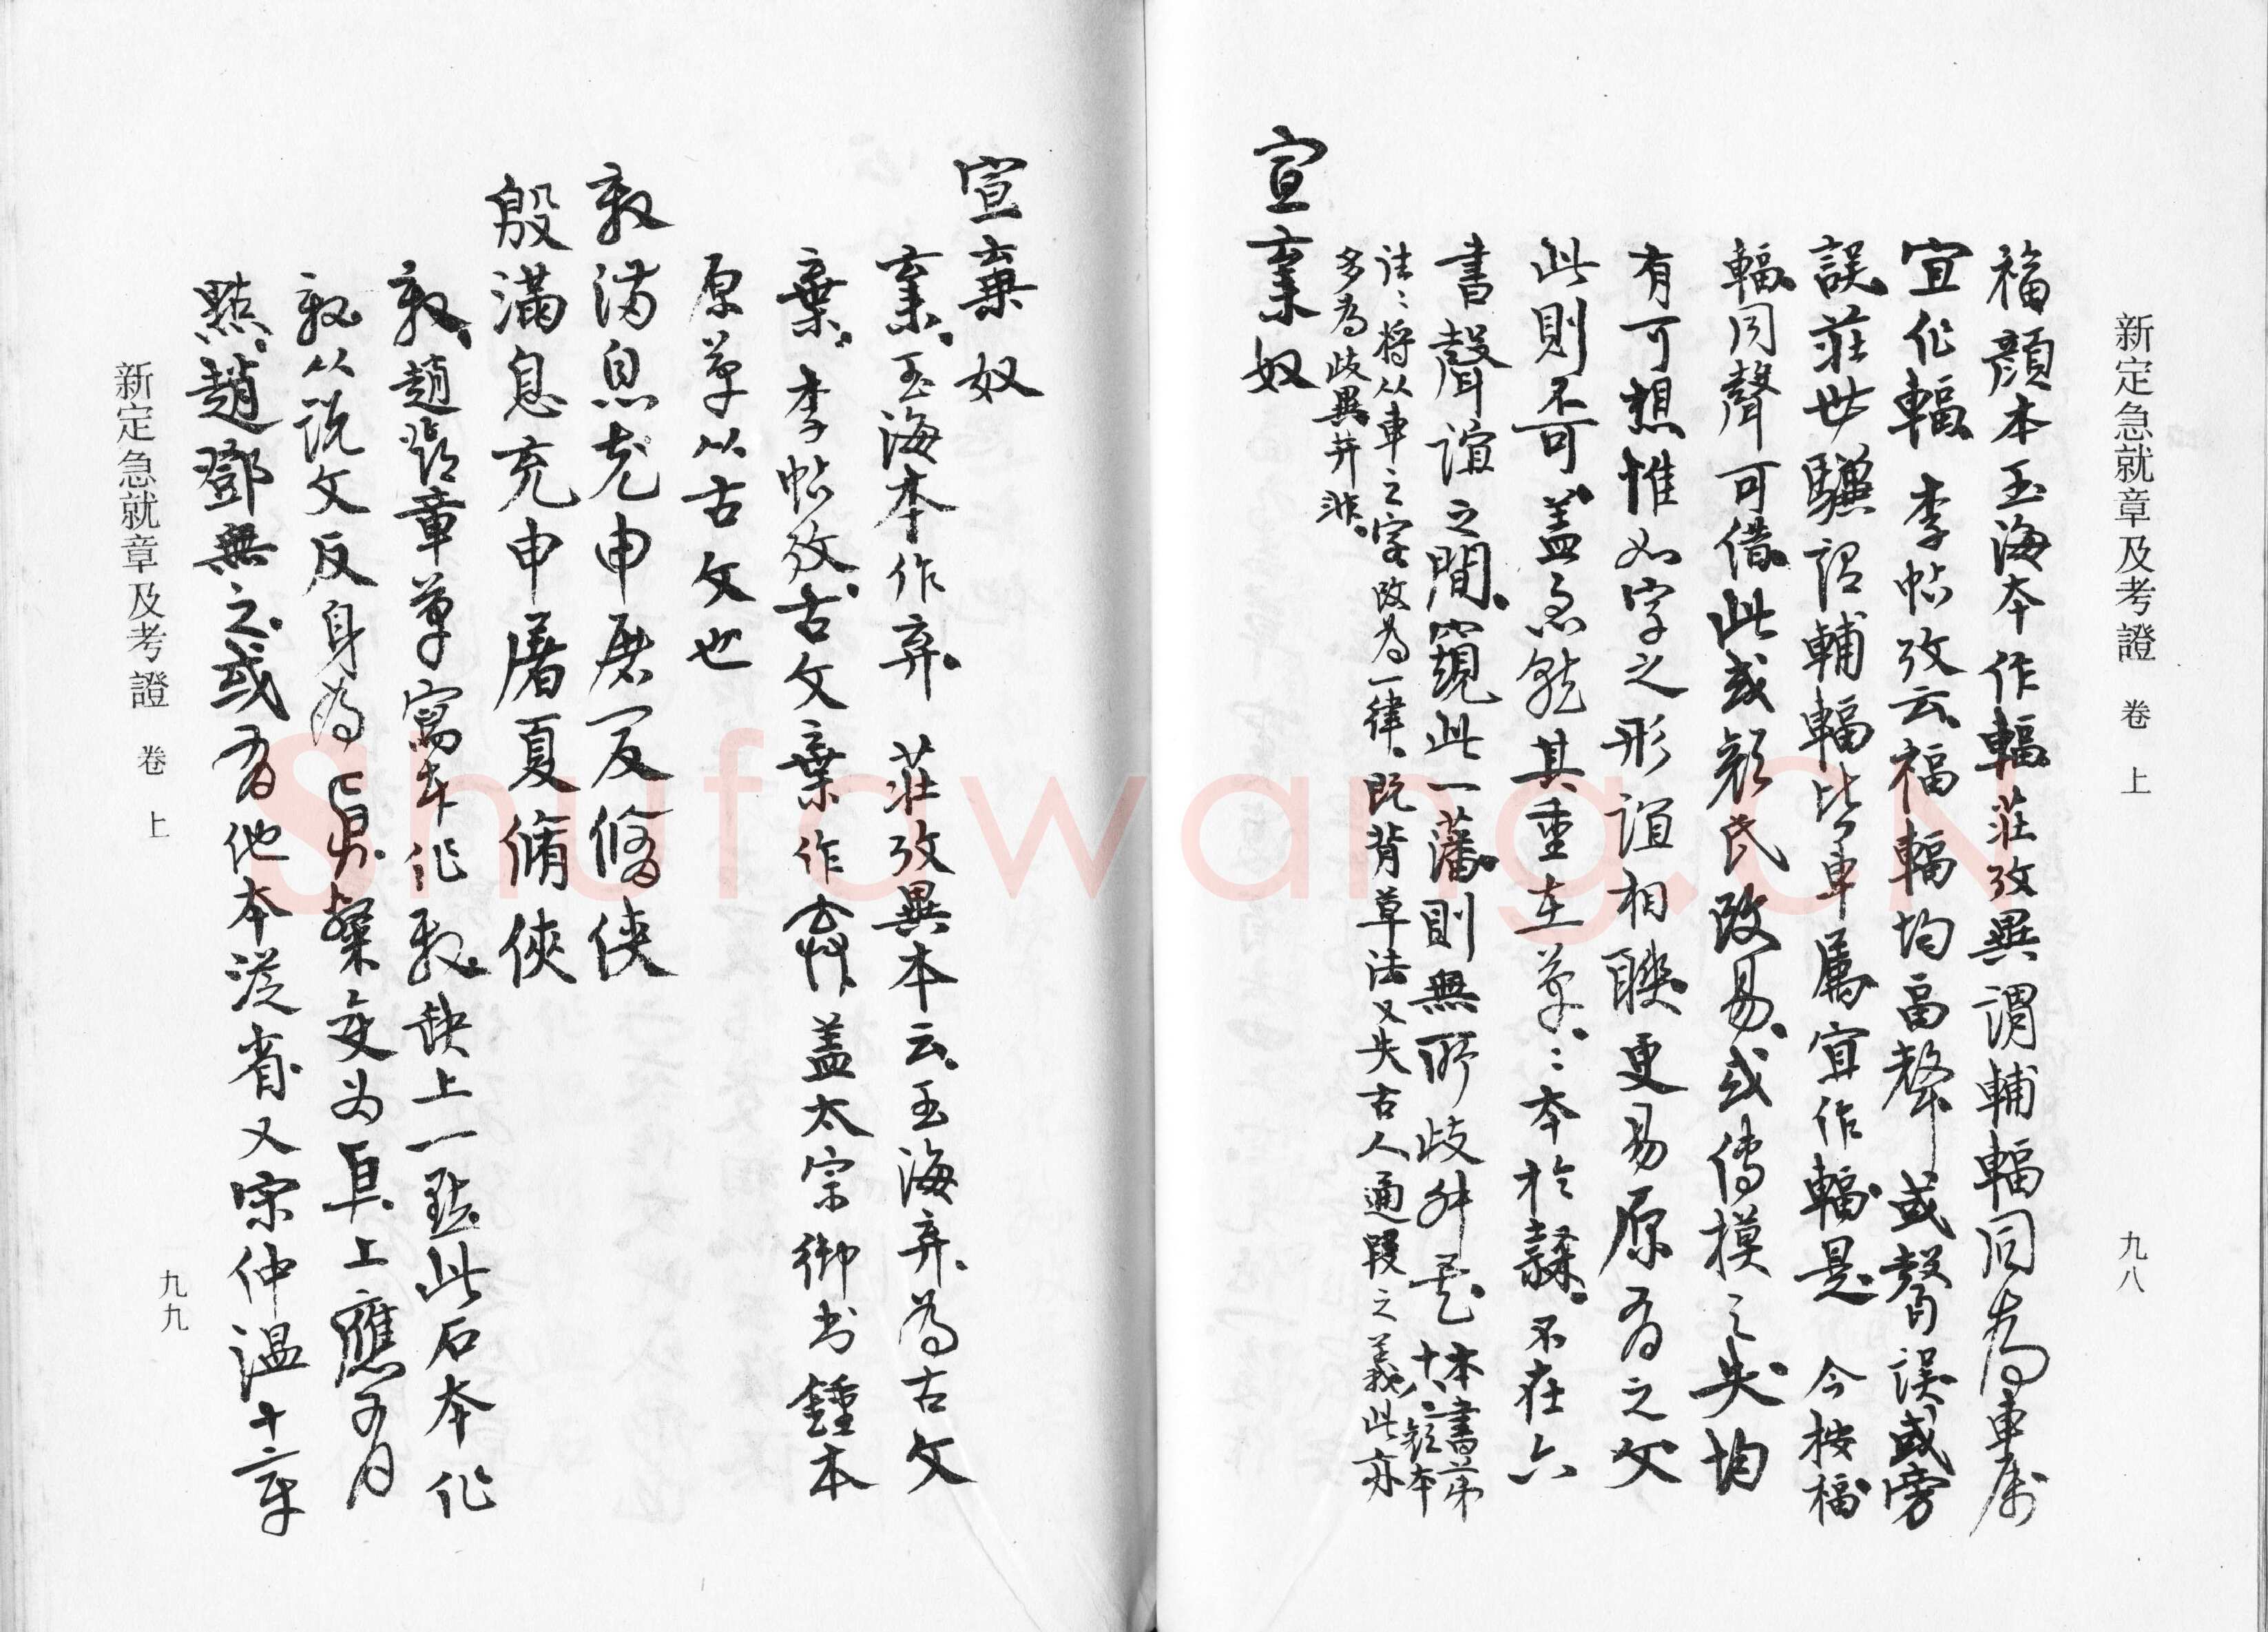 新定急就章及考證 卷上 九八
福顏本玉海本作輻莊攷異謂輔輻同為車屬
宜作輻 李帖攷云福輻均畐聲或聲誤或旁
誤莊世驥謂輔輻皆車屬宜作輻是 今按福
輻同聲可借此或顏氏改易或傳模之失均
有可想惟如字之形誼相聯更易原有之文
此則不可蓋急就其重在草草本於隸不在六
書聲誼之間窺此一藩則無所歧舛矣 本書第十六顏本
往往將從車之字改為一律既背草法又失古人通段之義此亦
多為歧異并非
宣棄奴
宣棄奴
棄玉海本作弃 莊攷異本云玉海弃為古文
棄 李帖攷古文棄作 蓋太宗御书鍾本
原草从古文也
滿息充申屠夏脩俠
殷滿息充申屠夏脩俠
趙 章草寫本作 缺上一點此石本作
从說文反身為 變為 上應有
點趙鄧無之或有他本從省又宋仲溫十章
新定急就章及考證 卷上 九九
Shufawang.CN